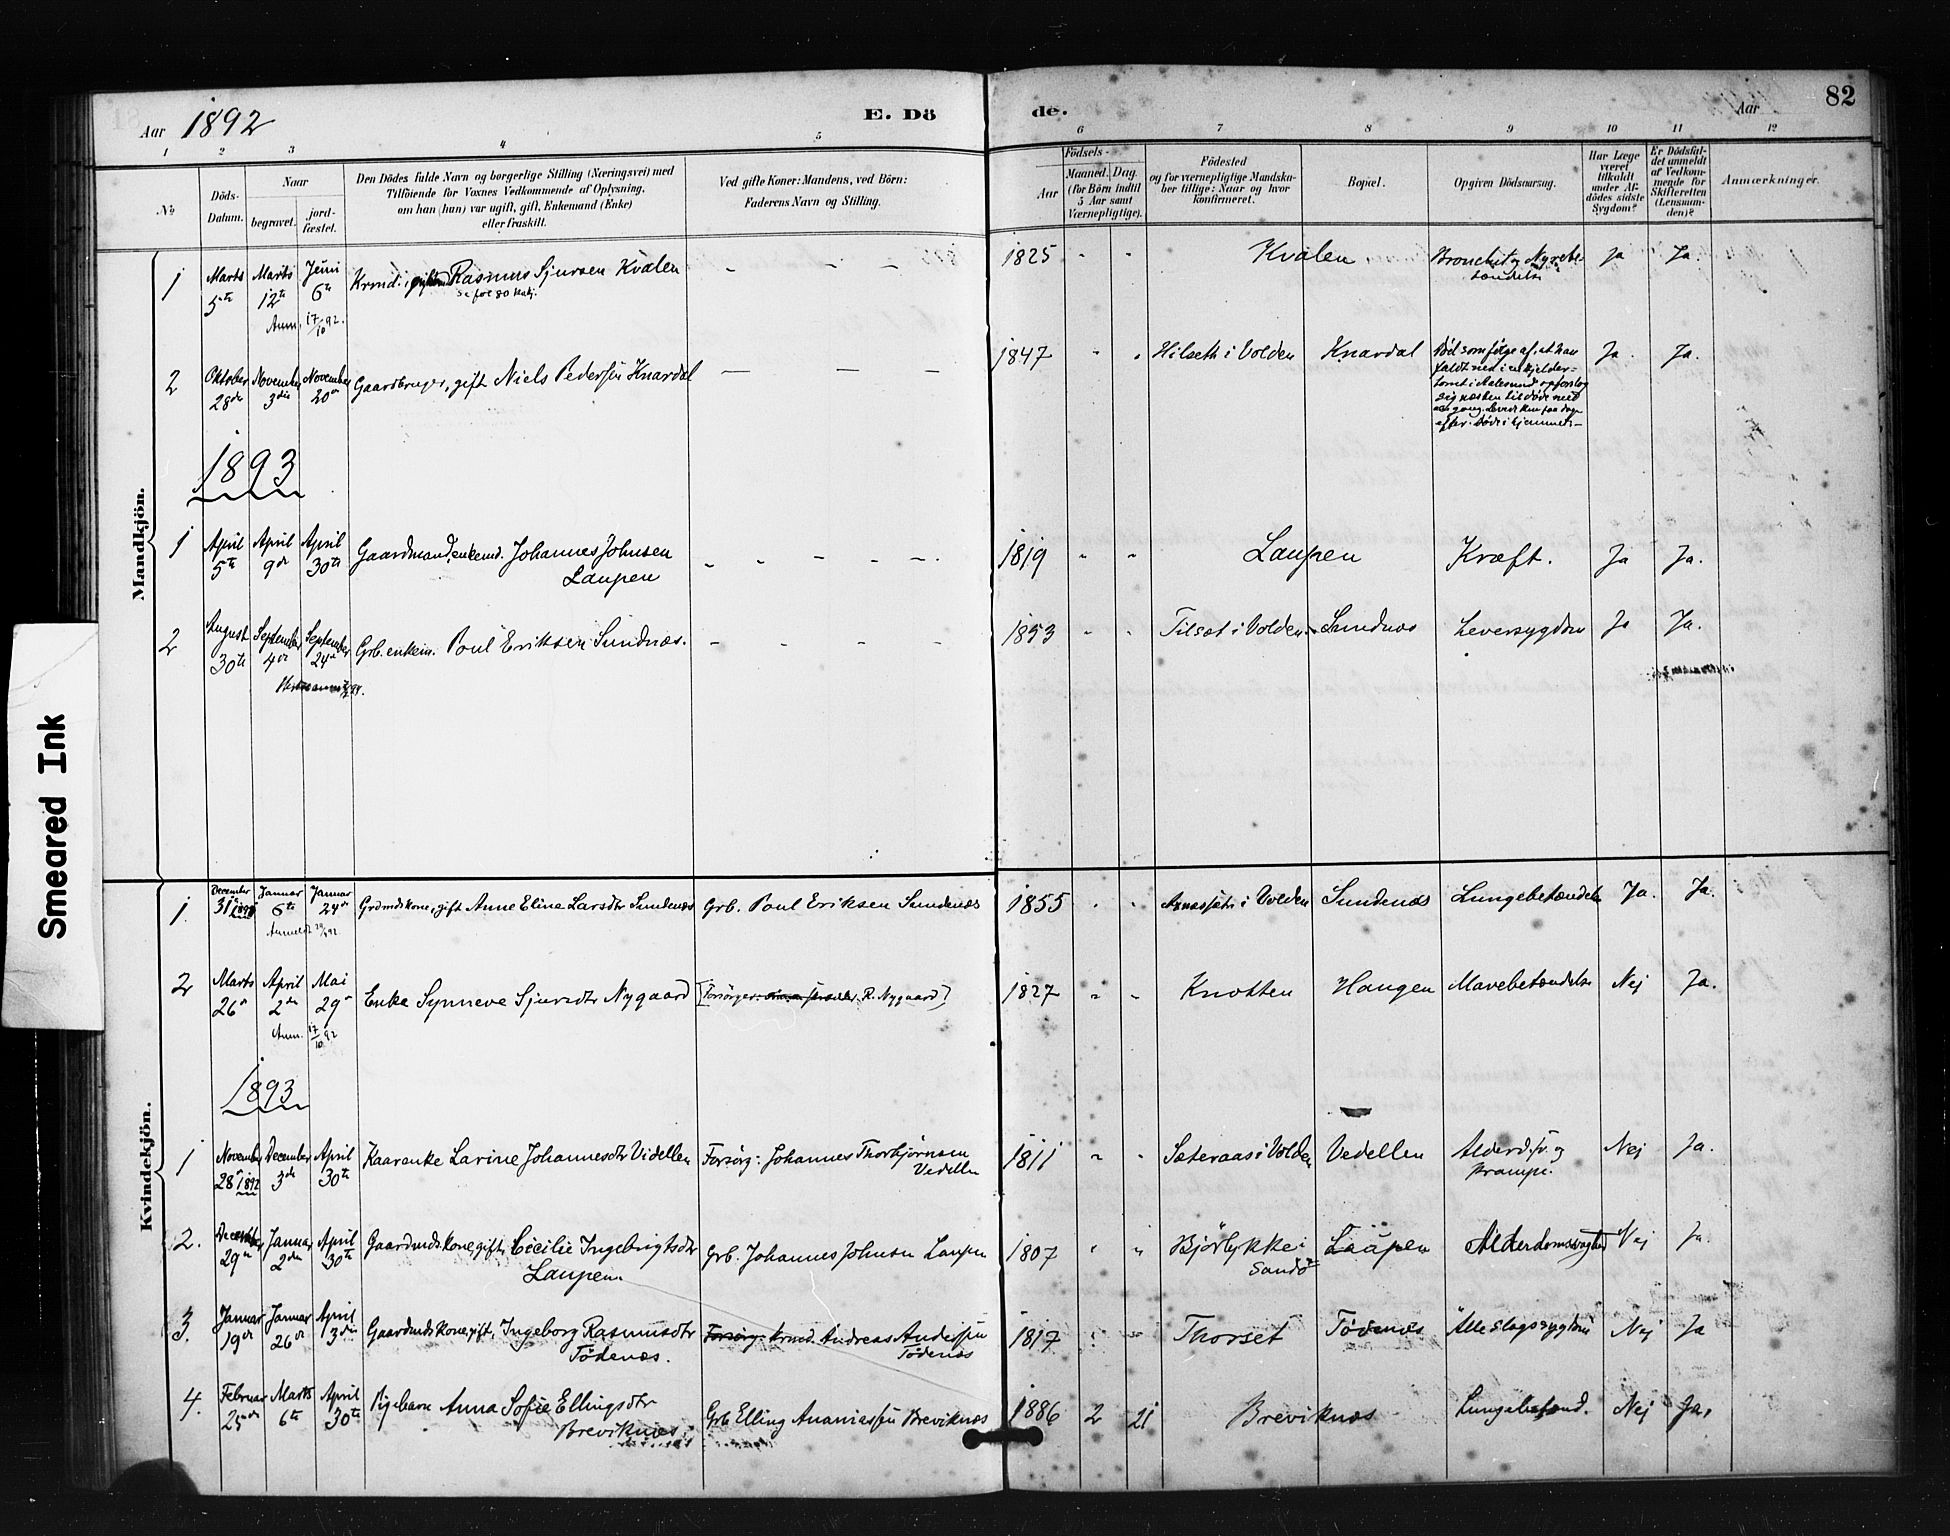 Aar 1892
E. Dö
de.
Aar
82
1 2 3 4 5 6 7 8 9 10 11 12
No
Döds-Datum.
Naar
begravet.
jord-fæstet.
Den Dödes fulde Navn og borgerlige Stilling (Næringsvei) med
Tilföiende for Voxnes Vedkommende af Oplysning,
om han (hun) var ugift, gift, Enkemand (Enke)
eller fraskilt.
Ved gifte Koner: Mandens, ved Börn:
Faderens Navn og Stilling.
Födsels-
Aar
Maaned. Dag.
(for Börn indtil
5 Aar samt
Værnepligtige).
Födested
og for værnepligtige Mandska-
ber tillige: Naar og hvor
konfirmeret.
Bopæl.
Opgiven Dödsaarsag.
Har Læge
været
tilkaldt
under Af-
dödes sidste
Sygdom?
Er Dödsfal-
det anmeldt
af Vedkom-
mende for
Skifteretten
(Lensman-
den)?
Anmærkninger.
Mandkjön.
1 Marts 5te Marts 12te Juni 6te Rasmus Sjursen Kvalen - - - - 1825 - - Kvalen Bronchit og Nyrebe-
tændelse Ja Ja.
Anm. 17/10 92.
2 Oktober 28de November 3die November 20de Gaardbruger, gift Niels Pedersen Knardal — — — — 1847 - - Hilseth i Volden Knardal Död som følge af, at han
faldt ned i en kjelder-
tomt i Aalesund og forslog
sig næsten til døde med
Ja. Ja.
1893
1 April 5te April 9de April 30te Gaardmand, enkemd. Johannes Johnsen
Laupen - - - - - 1819 - - Laupen Kræft. Ja Ja.
2 August 30te September 4de September 24de Grb. enkem. Poul Eriksen Sundnæs. - - - - 1853 - - Tilset i Volden Sundnæs Leversygdom Ja Ja.
Kvindekjön.
1. December 31te Januar 6te Januar 24de Grdmdskone, gift Anne Eline Larsdtr Sundenæs Grb. Poul Eriksen Sundenæs 1855 - - i Volden Sundenæs Lungebetændelse Ja. Ja.
2 Marts 26de April 2den Mai 29de Enke Synneve Sjursdtr Nygaard R. Nygaard) 1827 - - Knotten Haugen Mavebetændelse Nej Ja.
Anm. 17/10 92
1893
1 November 28de 1892 December 3die April 30te Kaarenke Larine Johannesdtr Videllen Forsörg: Johannes Thorbjörnsen
Vedellen 1811 - - Sæteraas i Volden Vedellen Alderd. sv. og
krampe. Nej Ja.
2. December 29de Januar 2den April 30te Gaardmdskone, gift, Cecilie Ingebrigtsdtr
Laupen. Grb. Johannes Johnsen Laupen 1807 - - Bjørlykke i
Sandö Laupen Alderdomssvaghed Nej Ja.
3. Januar 19de Januar 26de April 3die Gaardmdskone, gift, Ingeborg Rasmusdtr
Tödenes. Forsörg. Krmd. Andreas Andersen
Tödenæs 1817 - - Thorset Tödenes Alleslagssygdom Nej Ja
4. Februar 25de Marts 6te April 30te Pigebarn Anna Sofie Ellingsdtr
Breviknæs Grb Elling Ananiassen Breviknæs 1886 2 21 Breviknæs Lungebetænd. Nej Ja.
Smeared Ink